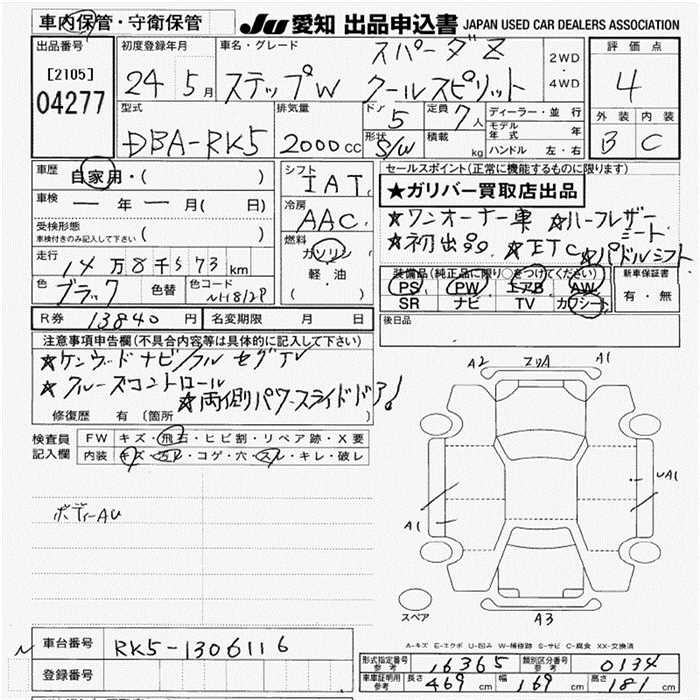 車内保管・守衛保管
JU 愛知 出品申込書 JAPAN USED CAR DEALERS ASSOCIATION
出品番号
[2105]
04277
初度登録年月
24 5月
車名・グレード
スパーダZ
ステップW クールスピリット
2WD
・
4WD
評価点
4
外装 内装
B C
型式
DBA-RK5
排気量
2000cc
ドア
5
定員
7人
形状
S/W
積載
kg
ディーラー・並行
モデル年式 年
ハンドル 左・右
車歴
自家用・( )
車検
ー年ー月( 日)
受検形態
車検付きのみ記入して下さい ( )
走行
14万8千573km
色
ブラック
色替
色コード
NH812P
シフト
IAT
冷房
AAC
燃料
ガソリン
軽・油
( )
セールスポイント(正常に機能するものに限ります)
★ガリバー買取店出品
★ワンオーナー車 ★ハーフレザーシート
★初出品 ★ETC ★パドルシフト
装備品(純正品に限り○をつけてください)
PS PW エアB AW
SR ナビ TV カワシート
新車保証書
有・無
後日品
R券 13840円
名変期限 月 日
注意事項申告欄(不具合内容等は具体的に記入して下さい)
★ケンウッドナビ/フルセグTV
★クルーズコントロール
★両側パワースライドドア!
修復歴 有 〔箇所
検査員記入欄
FW キズ・飛石・ヒビ割・リペア跡・X要
内装 キズ・汚レ・コゲ・穴・スレ・キレ・破レ
ボディーAU
A2 A1
UA1
A1
スペア
A3
A-キズ E-エクボ U-凹み W-補修跡 S-サビ C-腐食 XX-交換済
車台番号 RK5-1306116
登録番号
型式指定番号
参考
16365
類別区分番号
参考
0134
車庫証明用
参考
長さ 469cm
幅 169cm
高さ 181cm